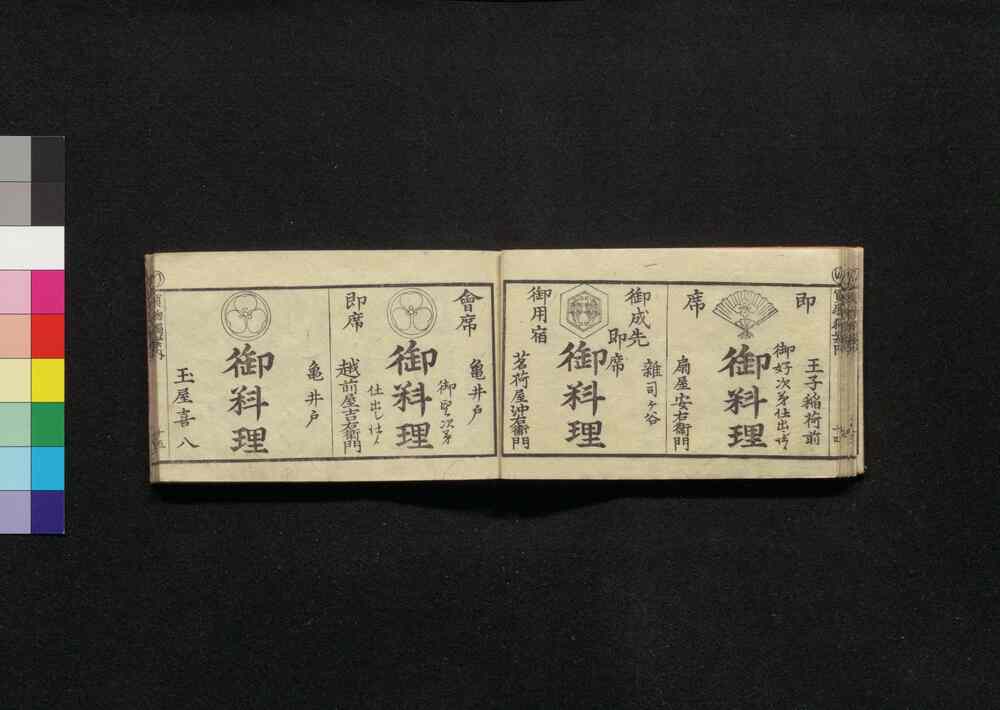 即席
王子稲荷前
御好次第仕出し仕候
御料理
扇屋安右衛門
御成先
即席
雑司ヶ谷
御料理
御用宿
茗荷屋沖右衛門
會席
亀井戸
御望次第
御料理
仕出し仕候
即席
越前屋吉右衛門
亀井戸
御料理
玉屋喜八